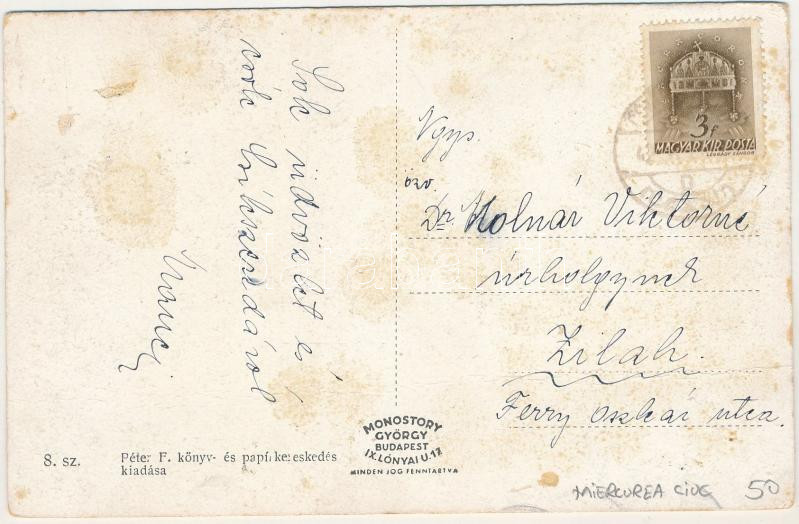 Sok üdvözlet és
csók Csíkszeredáról
SZENT KORONA
3f
MAGYAR KIR. POSTA
LÉGRÁDY SÁNDOR
Ngys.
özv.
Dr. Molnár Viktorné
úrhölgynek
Zilah.
Ferry Oszkár utca.
8. sz.
Péter F. könyv- és papírkereskedés
kiadása
MONOSTORY
GYÖRGY
BUDAPEST
IX. LÓNYAI U. 17
MINDEN JOG FENNTARTVA
MIERCUREA CIUC
50